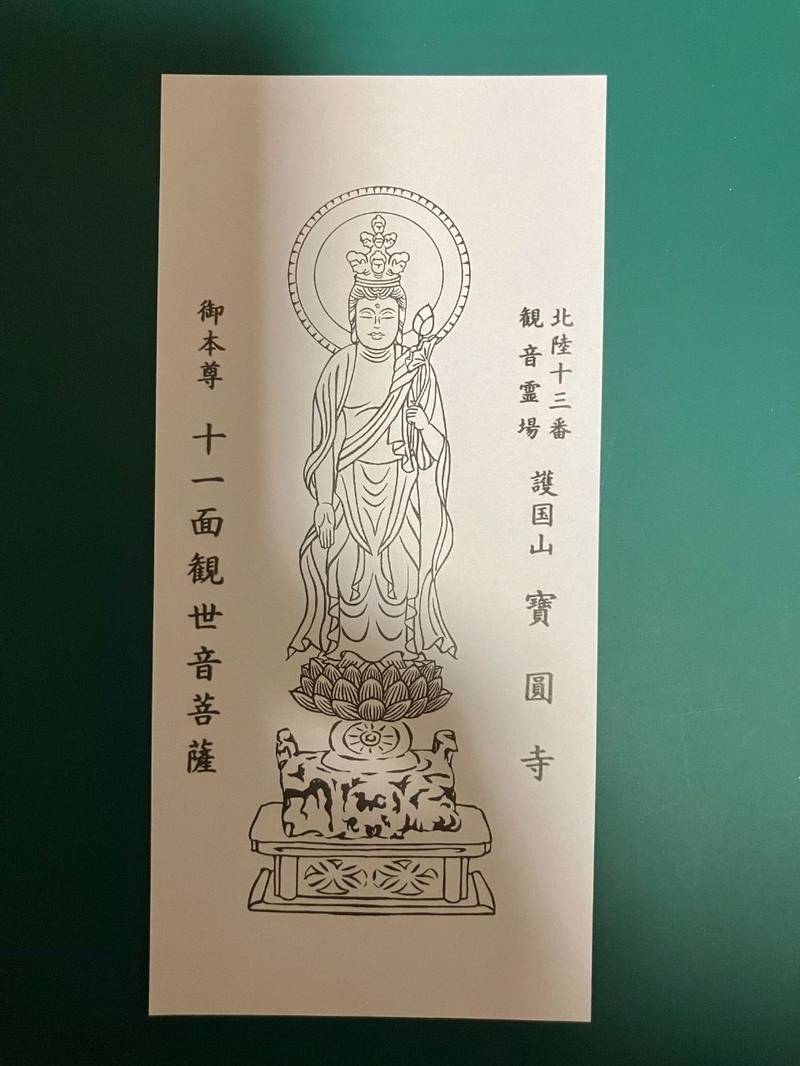 北陸十三番
観音霊場
護国山 寶圓寺
御本尊 十一面観世音菩薩